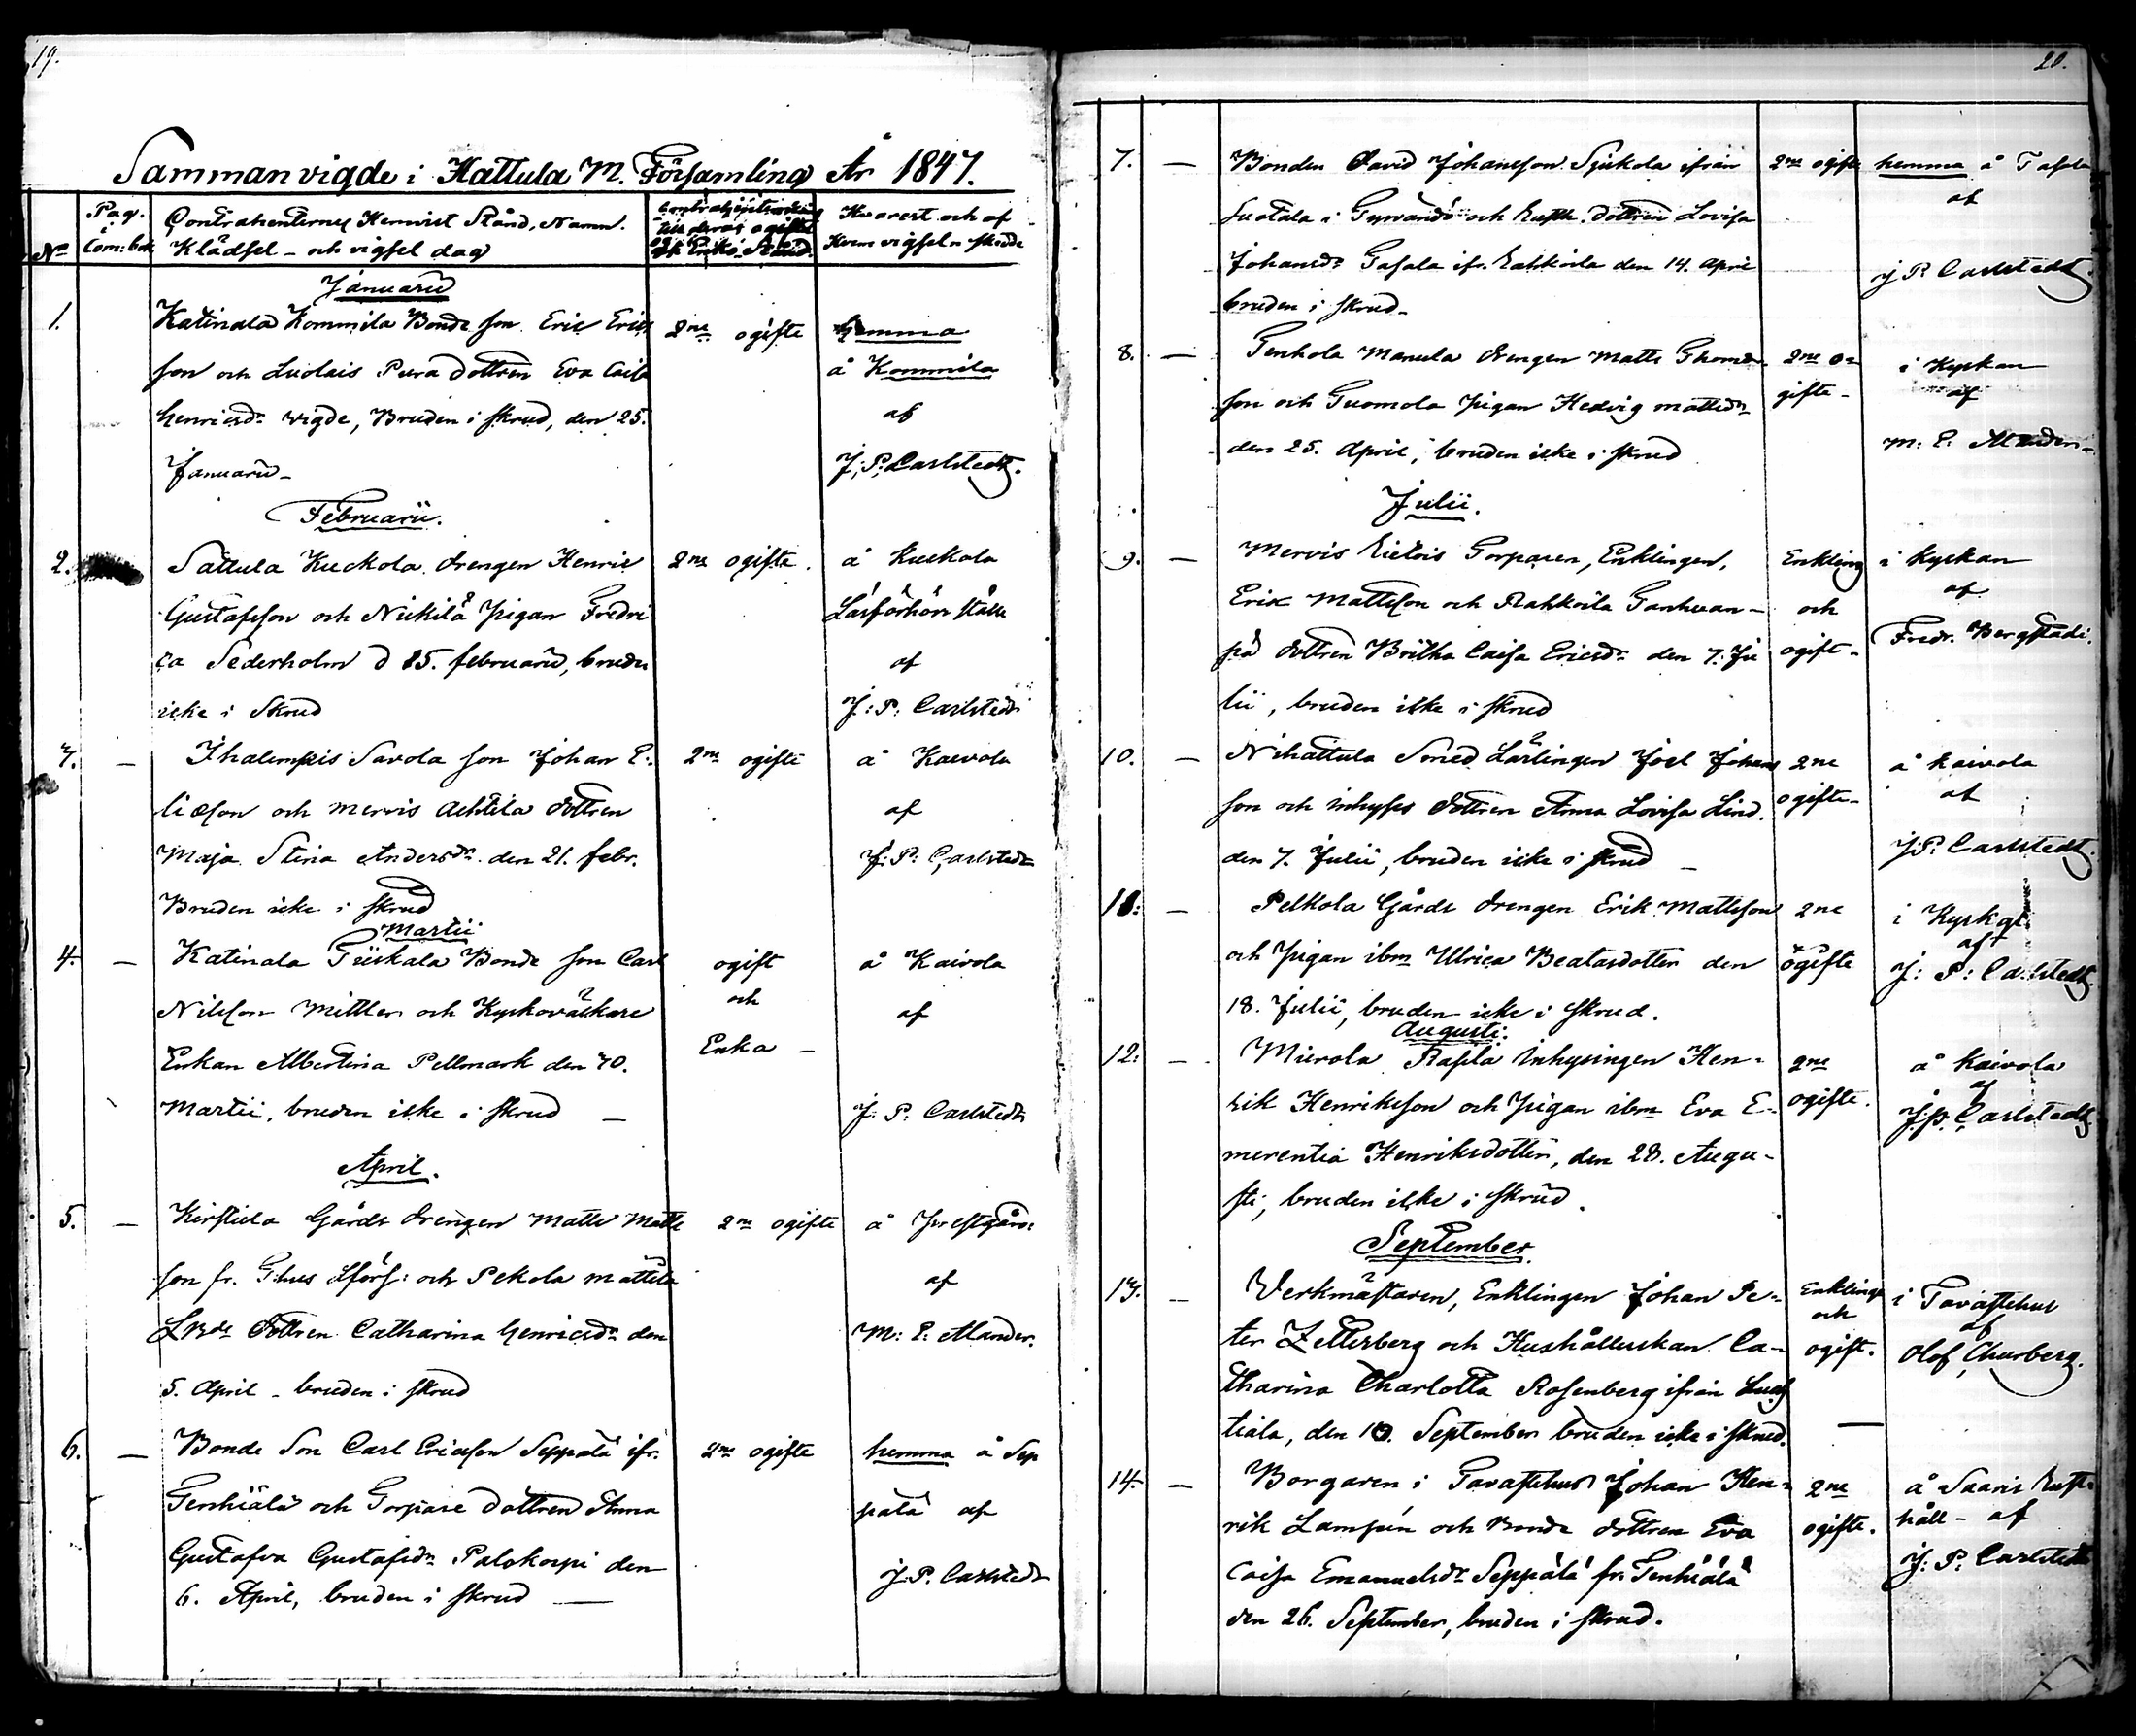 19.
Sammanvigde i Hattula M. Församling År 1847.
No
Pag. i Com: bok
Contrahenternes Hemvist Stånd, Namn.
Klädsel - och vigsel dag
Hvarest och af
Hvem vigseln skedde
Januarii
1.
Katinala Kommila Bonde son Eric Erics
son och Luolais Pura dottren Eva Caisa
Henricsdr vigde, Bruden i skrud, den 25.
Januarii -
2ne ogifte
hemma
å Kommila
af
J: P: Carlstedt.
Februarii.
2.
Sattula Kuckola drengen Henric
Gustafsson och Nickilä pigan Fredri
ca Sederholm d 15. februarii, bruden
icke i Skrud
2ne ogifte.
å Kuckola
Läsförhörs ställe
af
J: P: Carlstedt
3. —
Ihalempis Savola son Johan E:
licsson och Mervis Achtila dottren
Maja Stina Andersdr den 21. febr.
Bruden icke i skrud
2ne ogifte
å Kaivola
af
J: P: Carlstedt
Martii
4. —
Katinala Piiskala Bonde son Carl
Nilsson Mittler och Kyrkoväckare
Enkan Albertina Pellmark den 30.
Martii, bruden icke i skrud —
ogift
och
Enka —
å Kaivola
af
J: P: Carlstedt
April.
5. —
Kirstula Gårds drengen Matts Matts
son fr. T:hus Lförs: och Pekola Mattila
dottren Catharina Henricsdr den
5. April - bruden i skrud
2ne ogifte
å Prestgård:
af
M: E: Alander.
6. —
Bonde Son Carl Ericsson Seppälä ifr.
Tenhiälä och Torpare dottren Anna
Gustafva Gustafsdr Palokorpi den
6. April, bruden i skrud —
2ne ogifte
hemma å Sep
pälä af
J. P. Carlstedt
20.
7. —
Bonden David Johansson Sjukola ifrån
Suotala i Tyrvändö och Rusth. dottren Lovisa
Johansdr Tasala ifr. Rahkoila den 14. April
bruden i skrud -
2ne ogifte
hemma å Tasala
af
J P: Carlstedt.
8. —
Tenhola Manula drengen Matts Thomas
son och Tuomola pigan Hedvig Mattsdr
den 25. April, bruden icke i skrud
2ne o-
gifte -
i Kyrkan
af
M: E: Alander -
Julii.
9. —
Mervis Torparen, Enklingen,
Erik Mattsson och Rahkoila Tanhuan-
pä dottren Britha Caisa Ericsdr den 7. Ju
lii, bruden icke i skrud
Enkling
och
ogift -
i Kyrkan
af
Fredr. Bergstadi.
10. —
Nihattula Smed Lärlingen Joel Johans
son och inhyses dottren Anna Lovisa Lind.
den 7. Julii, bruden icke i skrud —
2ne
ogifte -
å Kaivola
af
J: P: Carlstedt.
11: —
Pelkola Gårds drengen Erik Mattsson
och pigan ibm Ulrica Beatasdotter den
18. Julii, bruden icke i skrud.
2ne
ogifte
i Kyrkan
af
J: P: Carlstedt.
Augusti:
12: —
Mierola Rapila inhysingen Hen-
rik Henriksson och pigan ibm Eva E-
merentia Henriksdotter, den 28. Augu-
sti, bruden icke i skrud.
2ne
ogifte.
å Kaivola
af
J. P. Carlstedt
September
13. —
Verkmästaren, Enklingen Johan Pe-
ter Zetterberg och Hushållerskan Ca-
tharina Charlotta Rosenberg ifrån
tiala, den 10. September bruden icke i skrud.
Enkling
och
ogift.
i Tavastehus
af
Olof Churberg.
14. —
Borgaren i Tavastehus Johan Hen-
rik Lampén och Bonde dottren Eva
Caisa Emanuelsdr Seppälä fr. Tenhiälä
den 26. September, bruden i skrud.
2ne
ogifte.
å Saaris Rust-
håll - af
J: P: Carlstedt